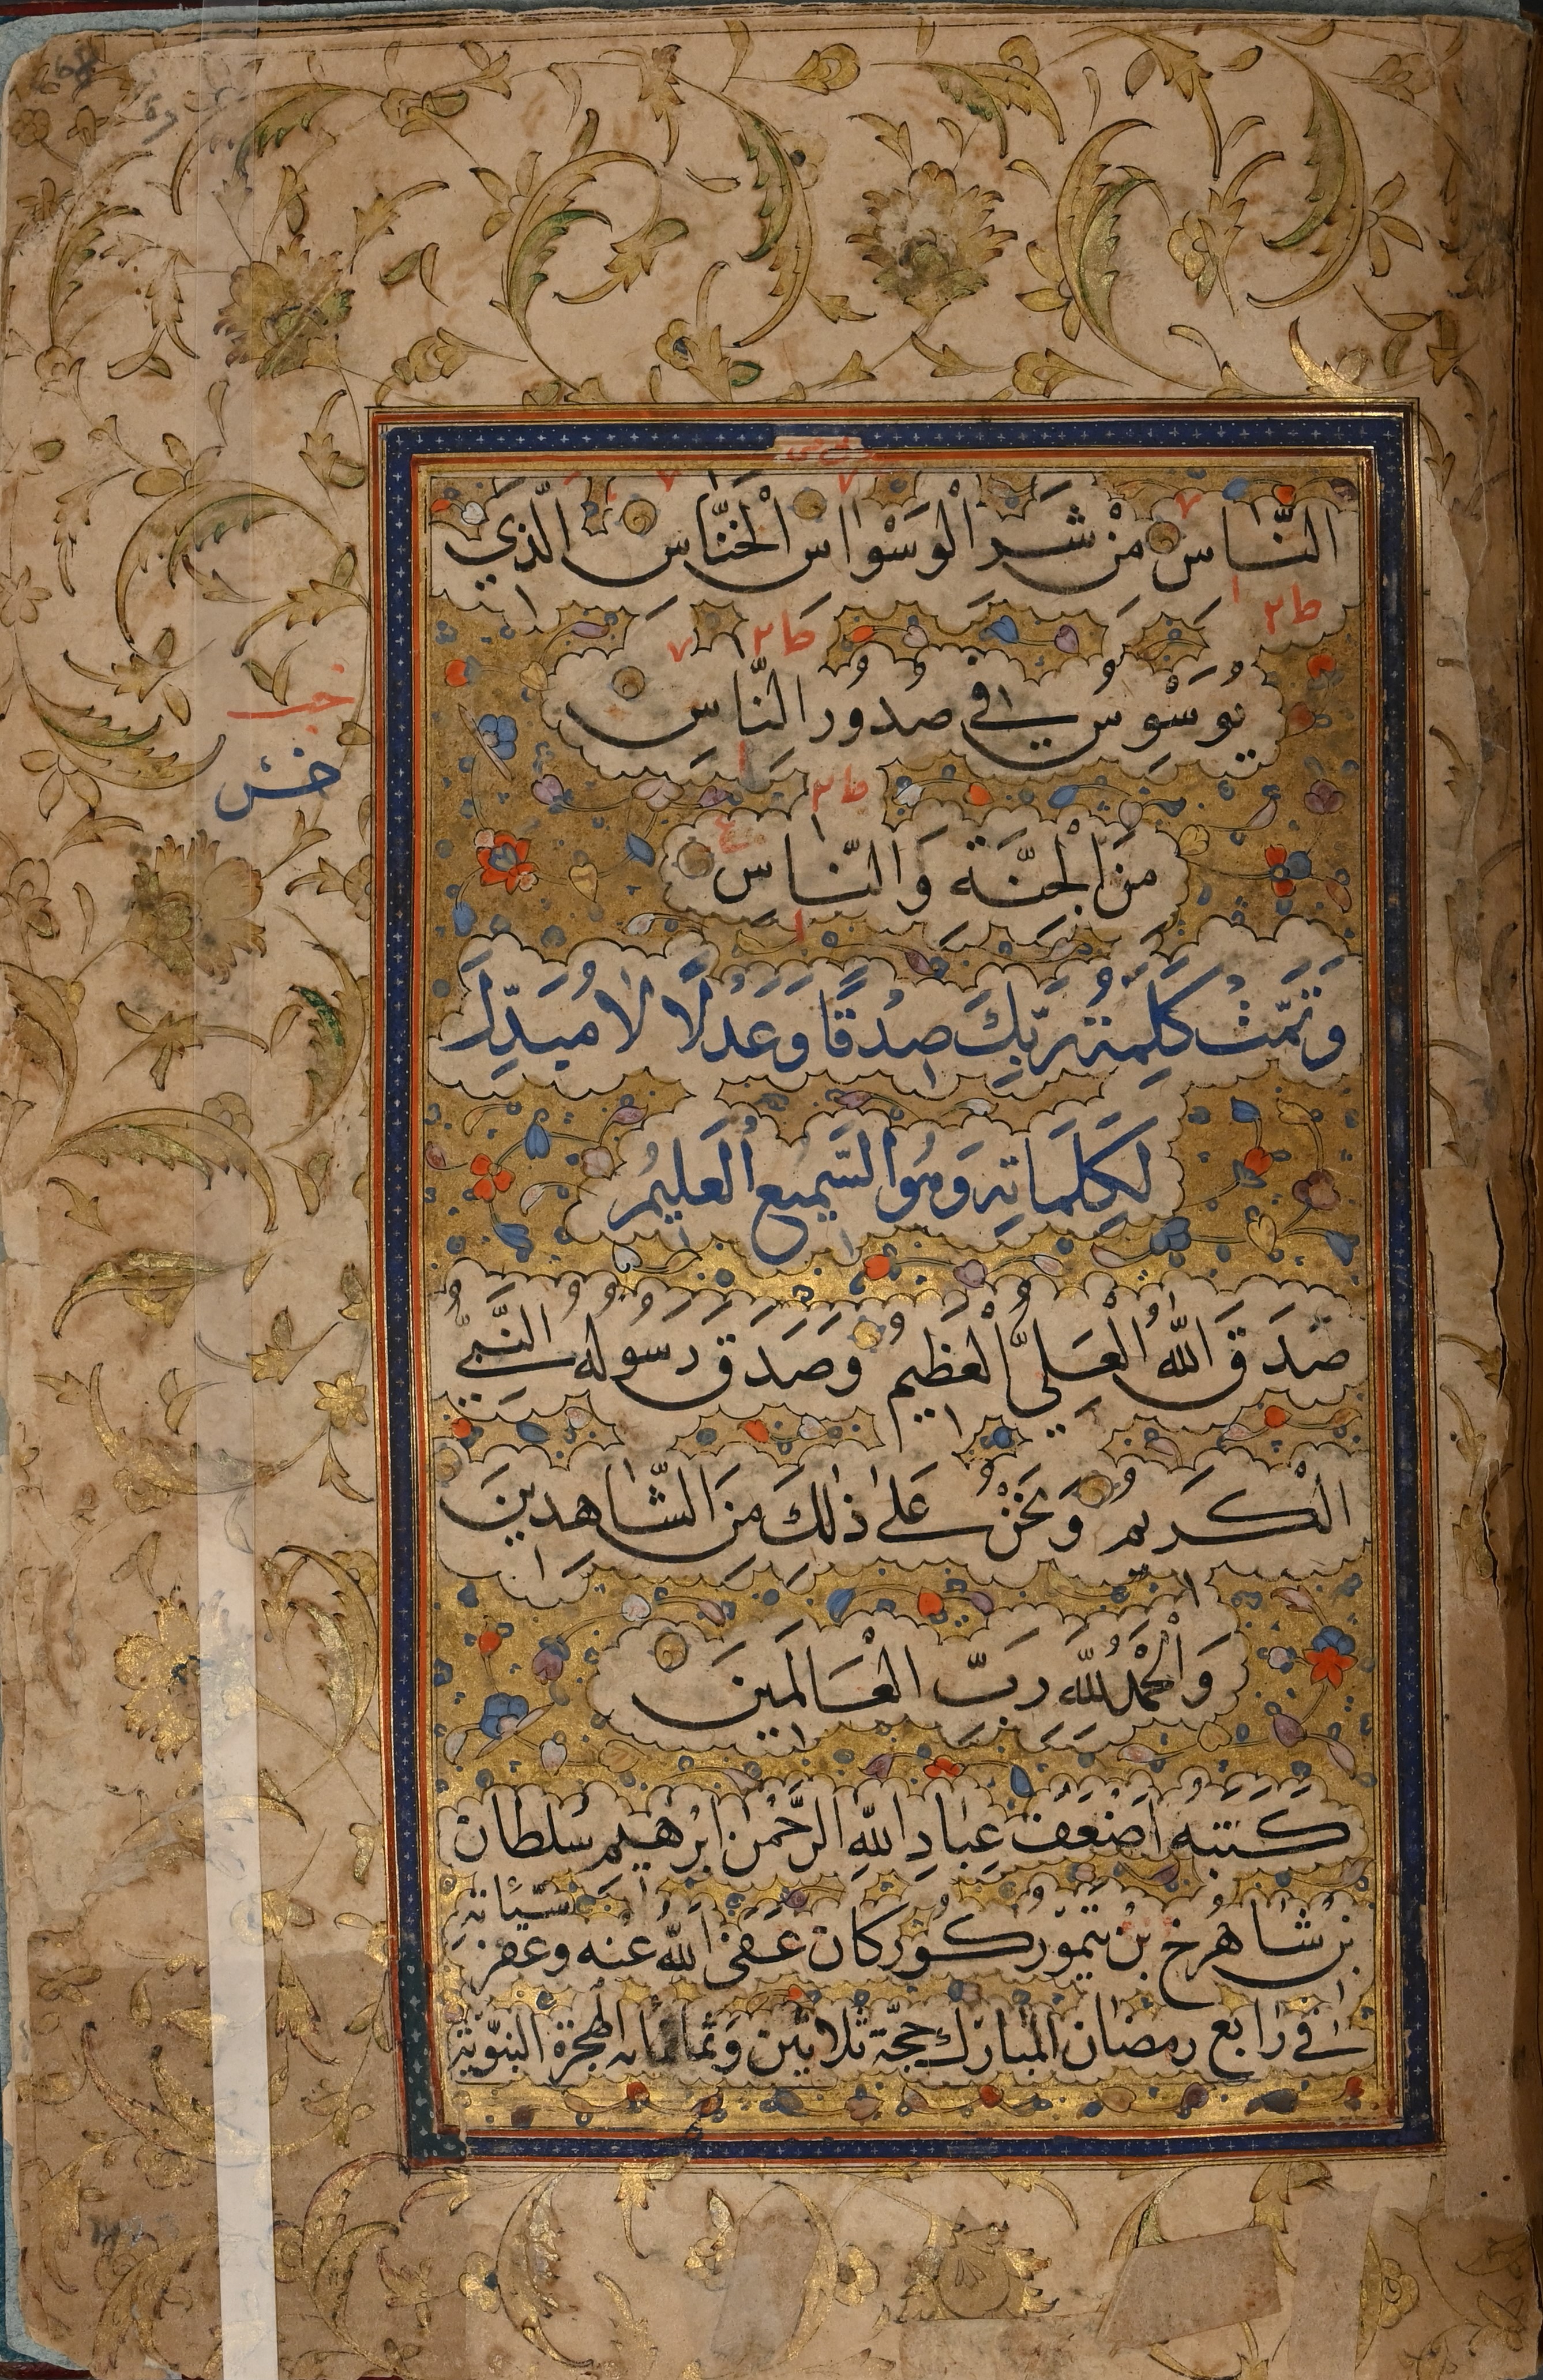 النَّاسِ مِنْ شَرِّ الْوَسْوَاسِ الْخَنَّاسِ الَّذِي
يُوَسْوِسُ فِي صُدُورِ النَّاسِ
مِنَ الْجِنَّةِ وَالنَّاسِ
وَتَمَّتْ كَلِمَةُ رَبِّكَ صِدْقًا وَعَدْلًا لَا مُبَدِّلَ
لِكَلِمَاتِهِ وَهُوَ السَّمِيعُ الْعَلِيمُ
صَدَقَ اللّٰهُ الْعَلِيُّ الْعَظِيمُ وَصَدَقَ رَسُولُهُ النَّبِيُّ
الْكَرِيمُ وَنَحْنُ عَلَىٰ ذٰلِكَ مِنَ الشَّاهِدِينَ
وَالْحَمْدُ لِلّٰهِ رَبِّ الْعَالَمِينَ
كَتَبَهُ اَضْعَفُ عِبَادِ اللّٰهِ الرَّحْمٰنِ ابْرٰهِيم سُلطان
بن شاهرخ بن تيمور كوركان عفى اللّٰه عنه وغفر سيّئاته
في رابع رمضان المبارك حجّة ثلاثين وثمانمائه الهجرة النبويّة